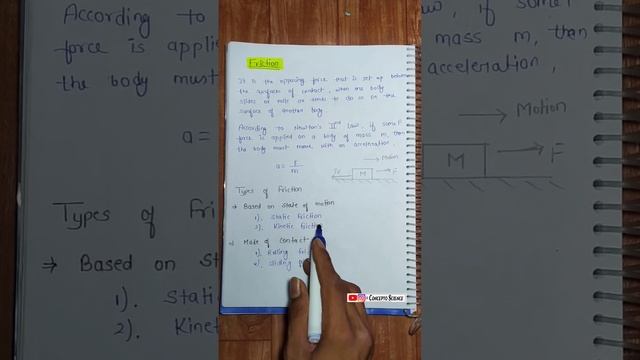 Friction
It is the opposing force that is set up between
the surfaces of contact, when one body
slides or rolls or tends to do so on the
surface of another body.
According to Newton's IInd law, if some F
force is applied on a body of mass m, then
the body must move with an acceleration,
a = F/m
Motion
M
F
Types of Friction
→ Based on state of motion
1). Static friction
2). Kinetic friction
→ Mode of contact
1). Rolling
2). Sliding
Concepto Science
According to
force is appli
the body must
a =
Types of Fri
→ Based on st
1). Stati
2). Kine
, if some F
mass m, then
acceleration,
Motion
M
F